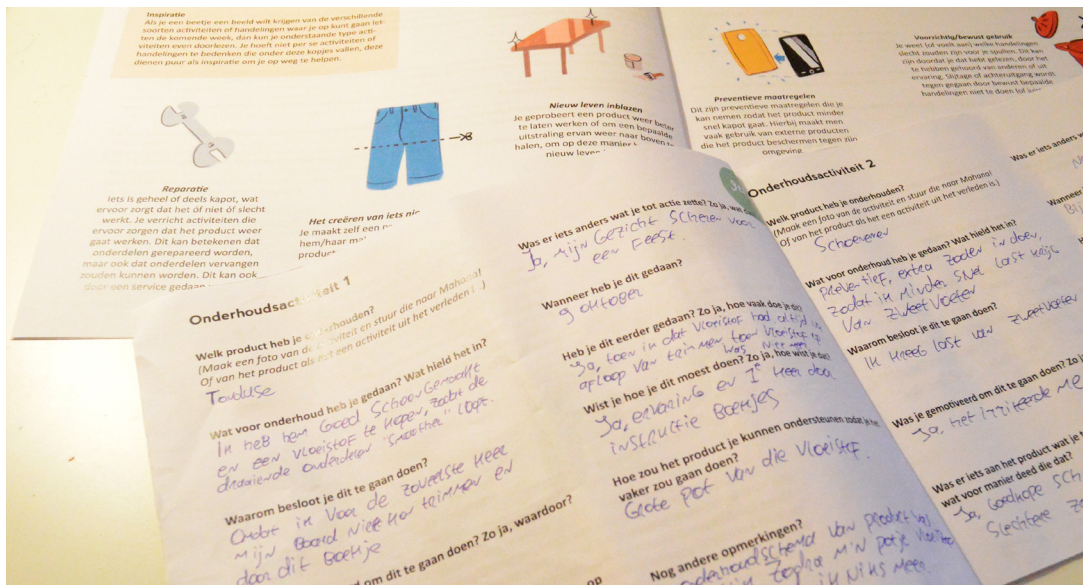 Inspiratie
Als je een beetje een beeld wilt krijgen van de verschillende
soorten activiteiten of handelingen waar je op kunt gaan let-
ten de komende week, dan kun je onderstaande type acti-
viteiten even doorlezen. Je hoeft niet per se activiteiten of
handelingen te bedenken die onder deze kopjes vallen, deze
dienen puur als inspiratie om je op weg te helpen.
Reparatie
Iets is geheel of deels kapot, wat
ervoor zorgt dat het óf niet óf slecht
werkt. Je verricht activiteiten die
ervoor zorgen dat het product weer
gaat werken. Dit kan betekenen dat
onderdelen gerepareerd worden,
maar ook dat onderdelen vervangen
zouden kunnen worden. Dit kan ook
door een service gedaan
Het creëren van iets
Je maakt zelf een
hem/haar
product
Nieuw leven inblazen
Je geprobeert een product weer beter
te laten werken of om een bepaalde
uitstraling ervan weer naar boven te
halen, om op deze manier
nieuw leven
Preventieve maatregelen
Dit zijn preventieve maatregelen die je
kan nemen zodat het product minder
snel kapot gaat. Hierbij maakt men
vaak gebruik van externe producten
die het product beschermen tegen zijn
omgeving
Voorzichtig/bewust gebruik
Je weet (of voelt aan) welke handelingen
slecht zouden zijn voor je spullen. Dit kan
zijn doordat je dat hebt gelezen, door het
te hebben gehoord van anderen of uit
ervaring. Slijtage of achteruitgang wordt
tegen gegaan door bewust bepaalde
handelingen niet te doen (of
Onderhoudsactiviteit 1
Welk product heb je onderhouden?
(Maak een foto van de activiteit en stuur die naar Mahana!
Of van het product als het een activiteit uit het verleden is.)
Tondeuse
Wat voor onderhoud heb je gedaan? Wat hield het in?
Ik heb hem goed schoongemaakt
en een vloeistof te kopen, zodat de
draaiende onderdelen "smoother" loopt.
Waarom besloot je dit te gaan doen?
Omdat ik voor de zoveelste keer
mijn baard niet kon trimmen en
door dit boekje
om dit te gaan doen? Zo ja, waardoor?
Was er iets anders wat je tot actie zette? Zo ja, wat
Ja, mijn gezicht scheren voor
een feest.
Wanneer heb je dit gedaan?
9 oktober
Heb je dit eerder gedaan? Zo ja, hoe vaak doe je dit?
Ja, toen ik dat vloeistof had altijd na
afloop van trimmen toen vloeistof op
was niet meer
Wist je hoe je dit moest doen? Zo ja, hoe wist je dat?
Ja, ervaring en 1e keer door
instructie boekjes
Hoe zou het product je kunnen ondersteunen zodat je het
vaker zou gaan doen?
Grote pot van die vloeistof.
Nog andere opmerkingen?
onderhoudschema van product was
zodra m'n potje vloeistof
ik niks meer.
Onderhoudsactiviteit 2
Welk product heb je onderhouden?
(Maak een foto van de activiteit en stuur die naar Mahana!
Of van het product als het een activiteit uit het verleden is.)
Schoenen
Wat voor onderhoud heb je gedaan? Wat hield het in?
Preventief, extra zolen in doen,
zodat ik minder snel last krijg
van zweetvoeten
Waarom besloot je dit te gaan doen?
Ik kreeg last van zweetvoeten
Was je gemotiveerd om dit te gaan doen? Zo
Ja, het irriteerde me
Was er iets aan het product wat je
wat voor manier deed die dat?
Ja, goedkope
slechtere
Was er iets anders
Wanneer